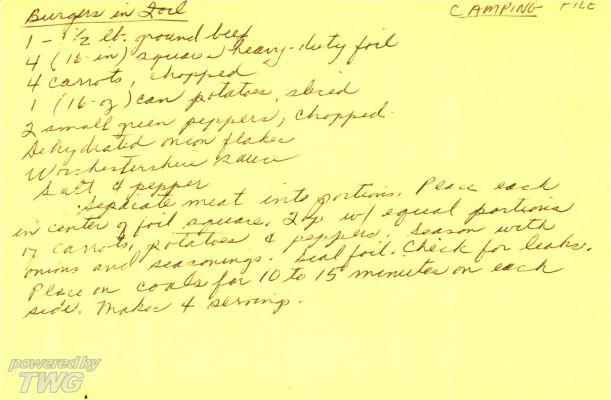 Burgers in Foil
CAMPING FILE
1 - 1 1/2 lb. ground beef
4 (16-in) squares heavy-duty foil
4 carrots, chopped
1 (16-oz) can potatoes, sliced
2 small green peppers, chopped.
Dehydrated onion flakes
Worchestershire sauce
Salt & pepper
Separate meat into portions. Place each
in center of foil square. Top w/ equal portions
of carrots, potatoes & peppers. Season with
onions and seasonings. Seal foil. Check for leaks.
Place on coals for 10 to 15 minutes on each
side. Makes 4 servings.
powered by
TWG